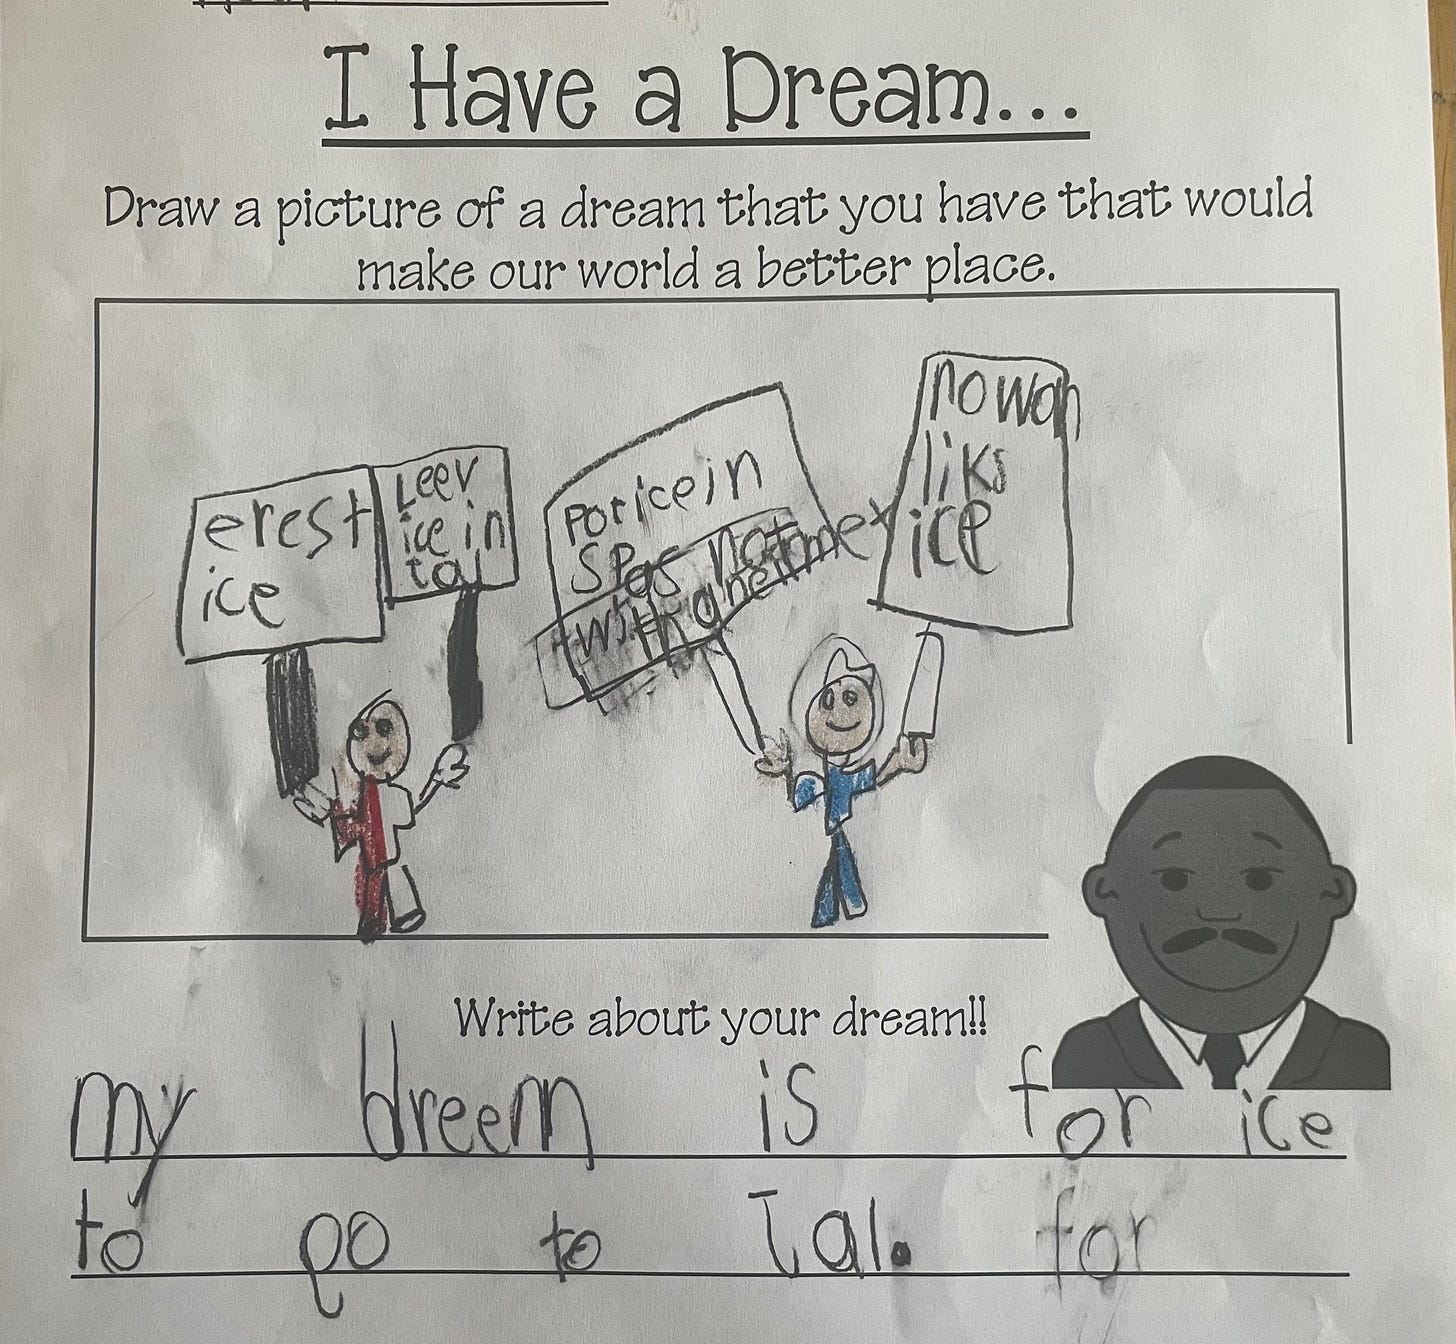 I Have a Dream...
Draw a picture of a dream that you have that would
make our world a better place.
erest
ice
Leev
ice in
tal
poticein
spas not
with a
nowan
liks
ice
Write about your dream!!
my dreem is for ice
to go to Tal. for